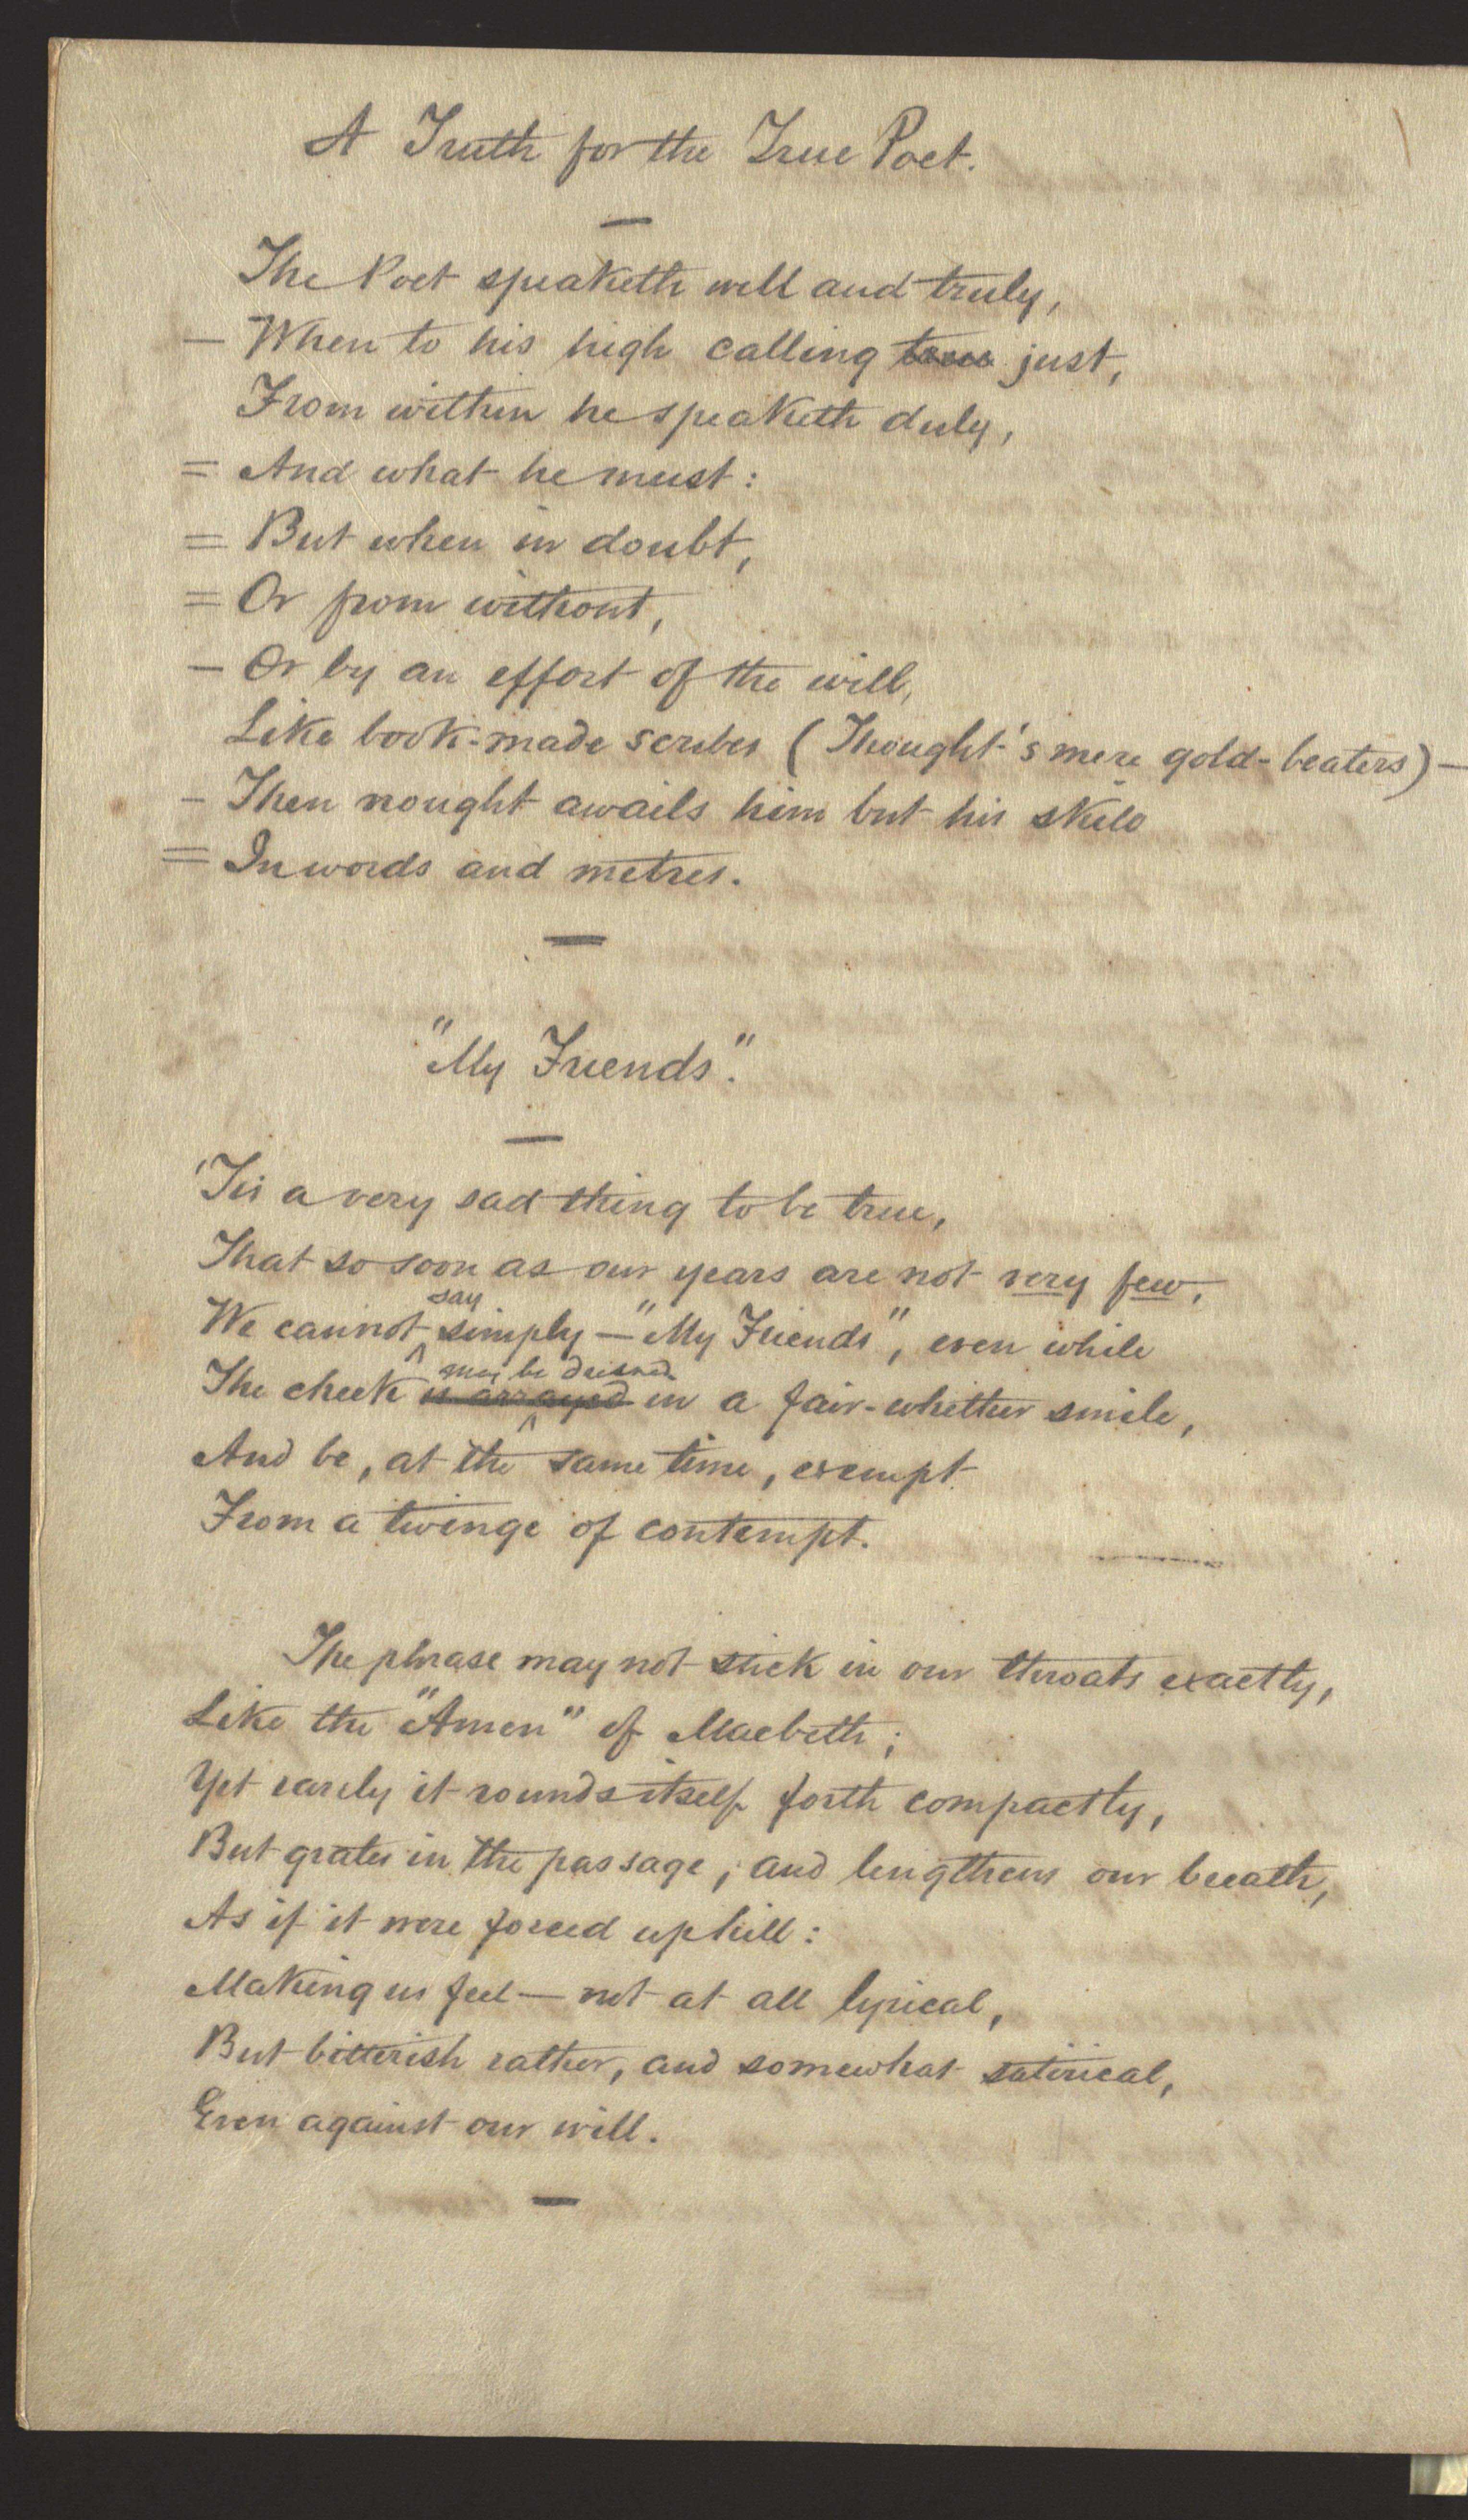 A Truth for the True Poet.
—
The Poet speaketh well and truly,
— When to his high calling true just,
From within he speaketh duly,
= And what he must:
= But when in doubt,
= Or from without,
— Or by an effort of the will,
Like book-made scribes (Thought's mere gold-beaters) —
— Then nought avails him but his skill
= In words and metres.
—
"My Friends".
—
'Tis a very sad thing to be true,
That so soon as our years are not very few,
say
We cannot ^ simply — "My Friends", even while
may be dressed
The cheek is arrayed ^ in a fair-whether smile,
And be, at the same time, exempt
From a twinge of contempt.
The phrase may not stick in our throats exactly,
Like the "Amen" of Macbeth;
Yet rarely it rounds itself forth compactly,
But grates in the passage, and lengthens our breath,
As if it were forced uphill:
Making us feel — not at all lyrical,
But bitterish rather, and somewhat satirical,
Even against our will.
—